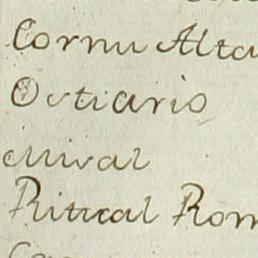 Cornu Alta
Ostiario
Missal
Ritual Rom